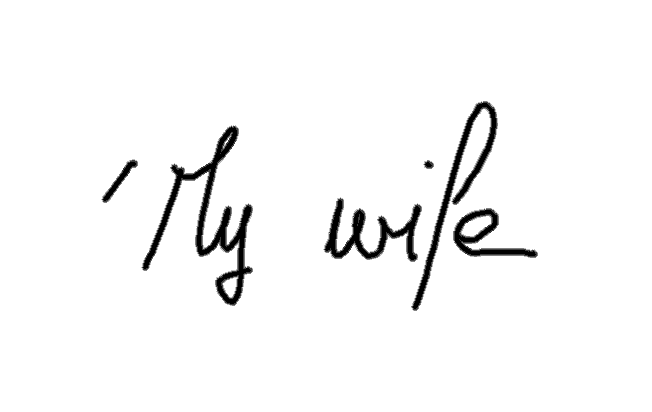 'My wife